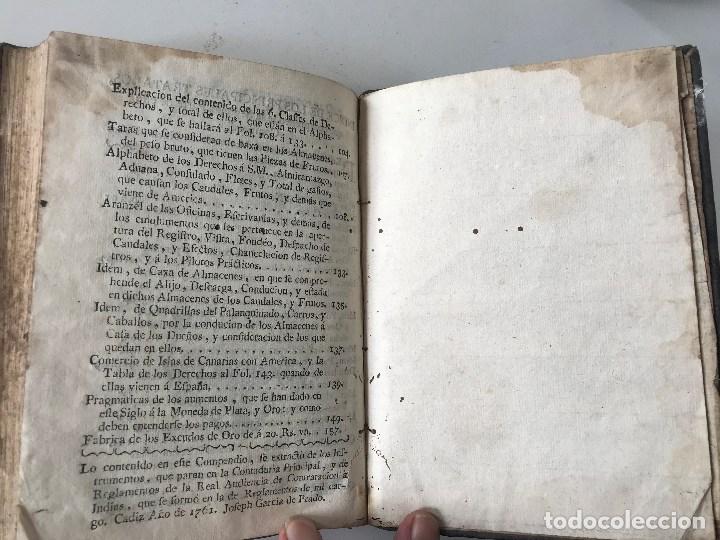 Explicacion del contenido de las 6. Classes de De-
rechos, y total de ellos, que están en el Alpha-
beto, que se hallará al Fol. 108. á 133. . . . . 104.
Taras que se consideran de baxa en los Almacenes,
del peso bruto, que tienen las Piezas de Frutos. . 107.
Alphabeto de los Derechos á S.M., Almirantazgo,
Aduana, Consulado, Fletes, y Total de gastos,
que causan los Caudales, Frutos, y demás que
viene de America. . . . . . . . . . . . . 108.
Aranzél de las Oficinas, Escrivanías, y demás, de
los emolumentos que les pertenece en la aper-
tura del Registro, Visita, Fondéo, Despacho de
Caudales, y Efectos, Chancelacion de Regis-
tros, y á los Pilotos Prácticos. . . . . . . . 133.
Idem, de Caxa de Almacenes, en que se compre-
hende el Alijo, Descarga, Conducion, y estada
en dichos Almacenes de los Caudales, y Frutos. 135.
Idem, de Quadrillas del Palanquinado, Carros, y
Caballos, por la conducion de los Almacenes á
Casa de los Dueños, y consideracion de los que
quedan en ellos. . . . . . . . . . . . . 137.
Comercio de Islas de Canarias con America, y la
Tabla de los Derechos al Fol. 143. quando de
ellas vienen á España. . . . . . . . . . . 139.
Pragmaticas de los aumentos, que se han dado en
este Siglo á la Moneda de Plata, y Oro: y como
deben entenderse los pagos. . . . . . . . . 149.
Fabrica de los Escudos de Oro de á 20. Rs. vn. . 157.
Lo contenido en este Compendio, se extractó de los Ins-
trumentos, que paran en la Contaduría Principal, y de
Reglamentos de la Real Audiencia de Contratacion á
Indias, que se formó en la de Reglamentos de mi car-
go. Cadiz Año de 1761. Joseph Garcia de Prado.
todocoleccion.net